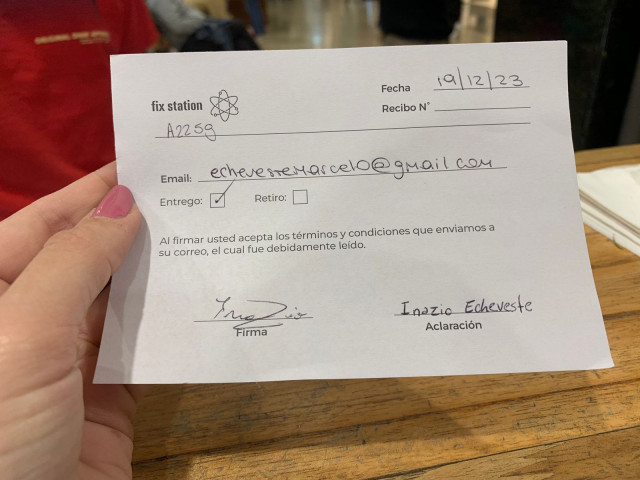 Fecha 19/12/23
fix station
Recibo N°
A225g
Email: echevesteMarcelo@gmail com
Entrego: ✓ Retiro:
Al firmar usted acepta los términos y condiciones que enviamos a
su correo, el cual fue debidamente leído.
Inazio Echeveste
Firma
Aclaración